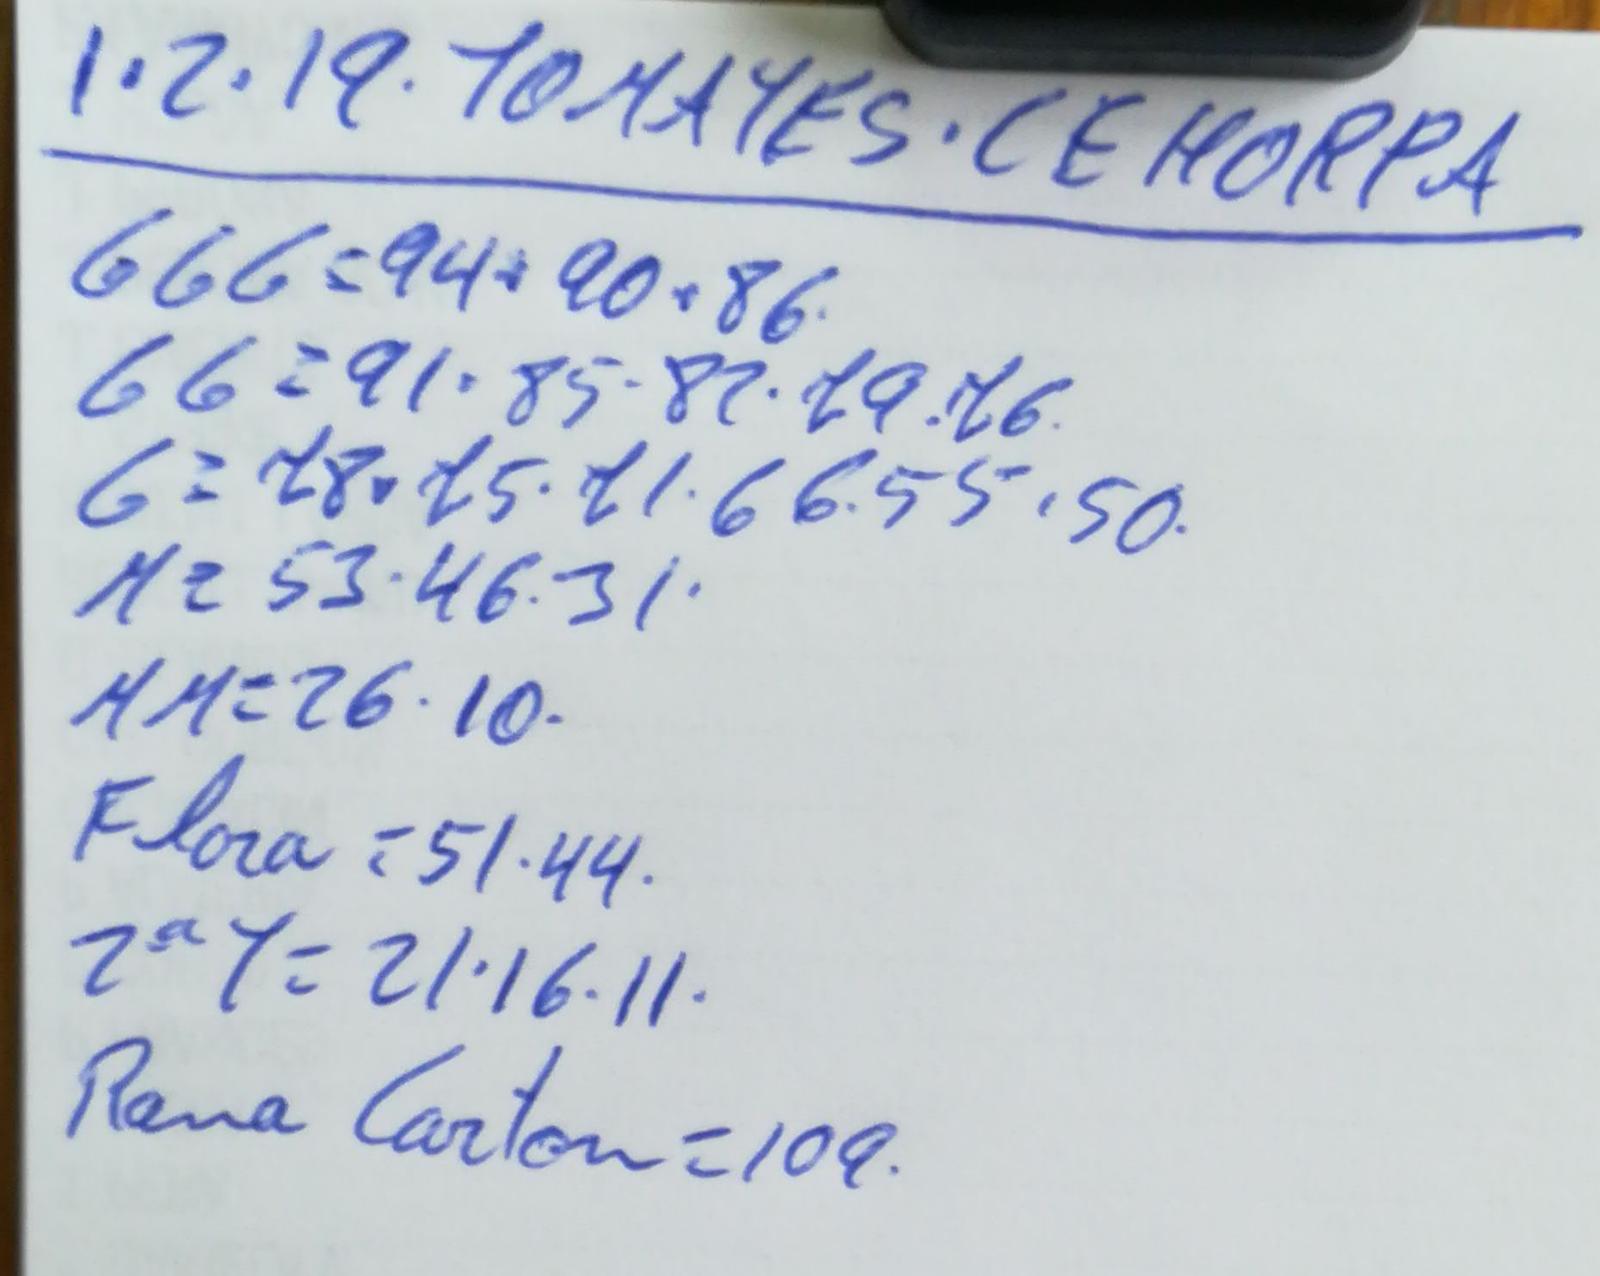 1.2.19. TOMATES. CEHORPA
GGG = 94. 90. 86.
GG = 91. 85. 82. 79. 76.
G = 78. 75. 71. 66. 55. 50.
M = 53. 46. 31.
MM = 26. 10.
Flora = 51. 44.
2ª T = 21. 16. 11.
Rama Carton = 109.